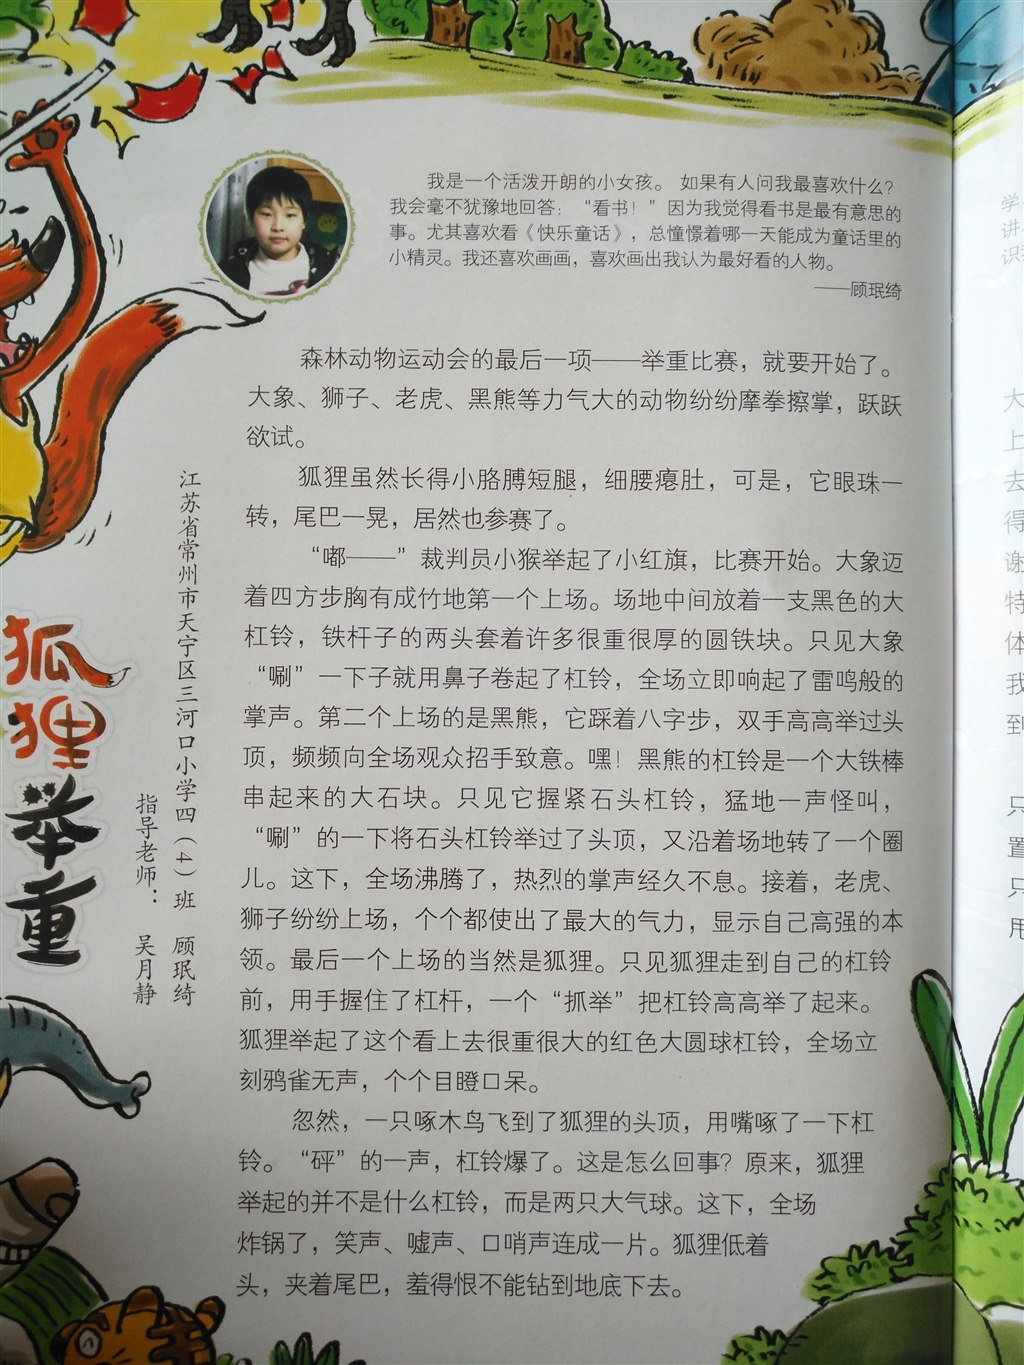 我是一个活泼开朗的小女孩。 如果有人问我最喜欢什么？
我会毫不犹豫地回答：“看书！”因为我觉得看书是最有意思的
事。尤其喜欢看《快乐童话》，总憧憬着哪一天能成为童话里的
小精灵。我还喜欢画画，喜欢画出我认为最好看的人物。
——顾珉绮
狐狸举重
江苏省常州市天宁区三河口小学四（4）班 顾珉绮
指导老师： 吴月静
森林动物运动会的最后一项——举重比赛，就要开始了。
大象、狮子、老虎、黑熊等力气大的动物纷纷摩拳擦掌，跃跃
欲试。
狐狸虽然长得小胳膊短腿，细腰瘪肚，可是，它眼珠一
转，尾巴一晃，居然也参赛了。
“嘟——”裁判员小猴举起了小红旗，比赛开始。大象迈
着四方步胸有成竹地第一个上场。场地中间放着一支黑色的大
杠铃，铁杆子的两头套着许多很重很厚的圆铁块。只见大象
“唰”一下子就用鼻子卷起了杠铃，全场立即响起了雷鸣般的
掌声。第二个上场的是黑熊，它踩着八字步，双手高高举过头
顶，频频向全场观众招手致意。嘿！黑熊的杠铃是一个大铁棒
串起来的大石块。只见它握紧石头杠铃，猛地一声怪叫，
“唰”的一下将石头杠铃举过了头顶，又沿着场地转了一个圈
儿。这下，全场沸腾了，热烈的掌声经久不息。接着，老虎、
狮子纷纷上场，个个都使出了最大的气力，显示自己高强的本
领。最后一个上场的当然是狐狸。只见狐狸走到自己的杠铃
前，用手握住了杠杆，一个“抓举”把杠铃高高举了起来。
狐狸举起了这个看上去很重很大的红色大圆球杠铃，全场立
刻鸦雀无声，个个目瞪口呆。
忽然，一只啄木鸟飞到了狐狸的头顶，用嘴啄了一下杠
铃。“砰”的一声，杠铃爆了。这是怎么回事？原来，狐狸
举起的并不是什么杠铃，而是两只大气球。这下，全场
炸锅了，笑声、嘘声、口哨声连成一片。狐狸低着
头，夹着尾巴，羞得恨不能钻到地底下去。
学
讲
识
大
上
去
得
谢
特
体
我
到
只
置
只
用